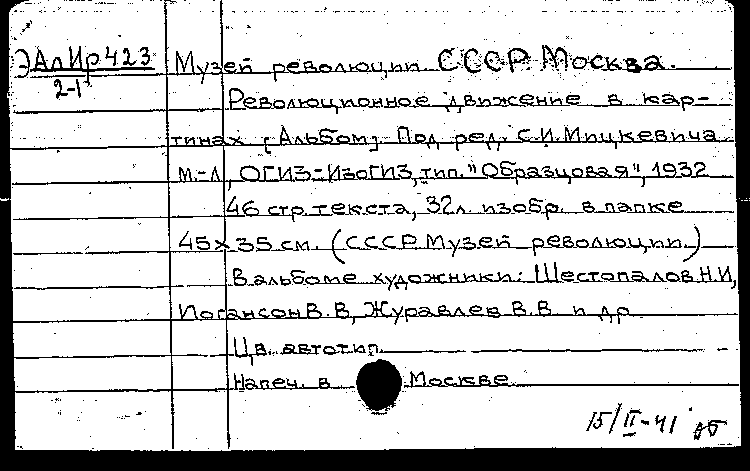 ЭАлИр423 Музей революции СССР. Москва.
2-1
Революционное движение в кар-
тинах [Альбом] Под ред. С.И.Мицкевича
М.-Л., ОГИЗ-ИзоГИЗ, тип. "Образцовая", 1932
46 стр. текста, 32л. изобр. в папке
45х35 см. (СССР. Музей революции.)
В альбоме художники: Шестопалов Н.И,
Иогансон В.В, Журавлев В.В и др.
Цв. автотип.
Напеч. в Москве
15/II-41